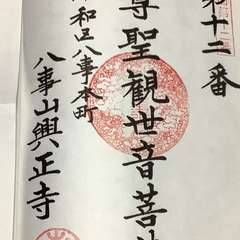 第十二番
尊聖観世音菩
昭和区八事本町
八事山興正寺